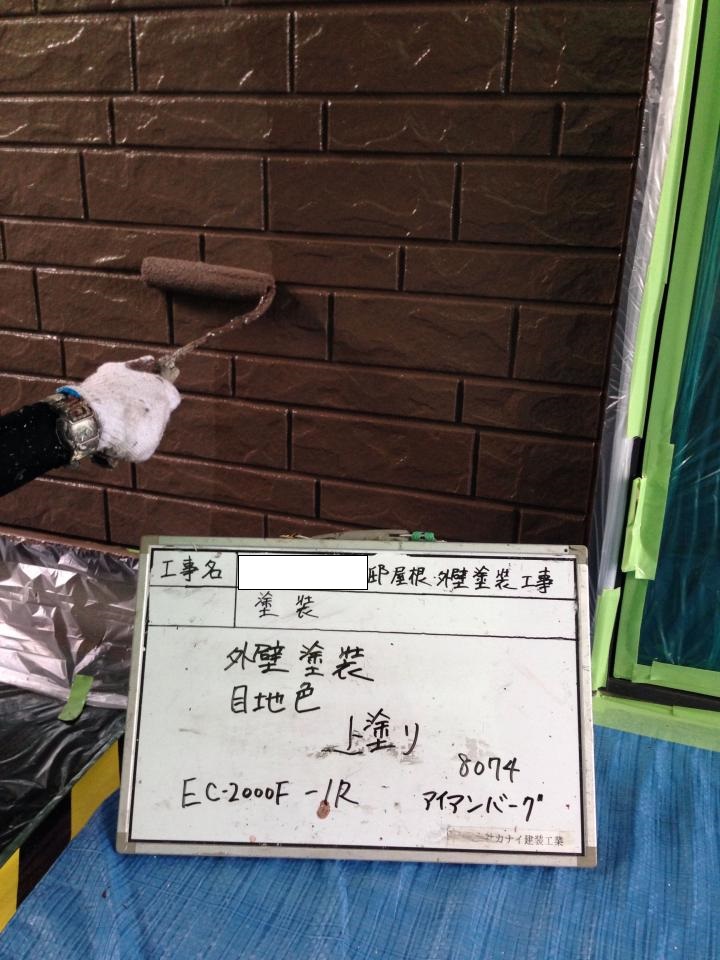 工事名 邸屋根外壁塗装工事
塗装
外壁塗装
目地色
上塗り
8074
EC-2000F-IR アイアンバーグ
サカナイ建装工業